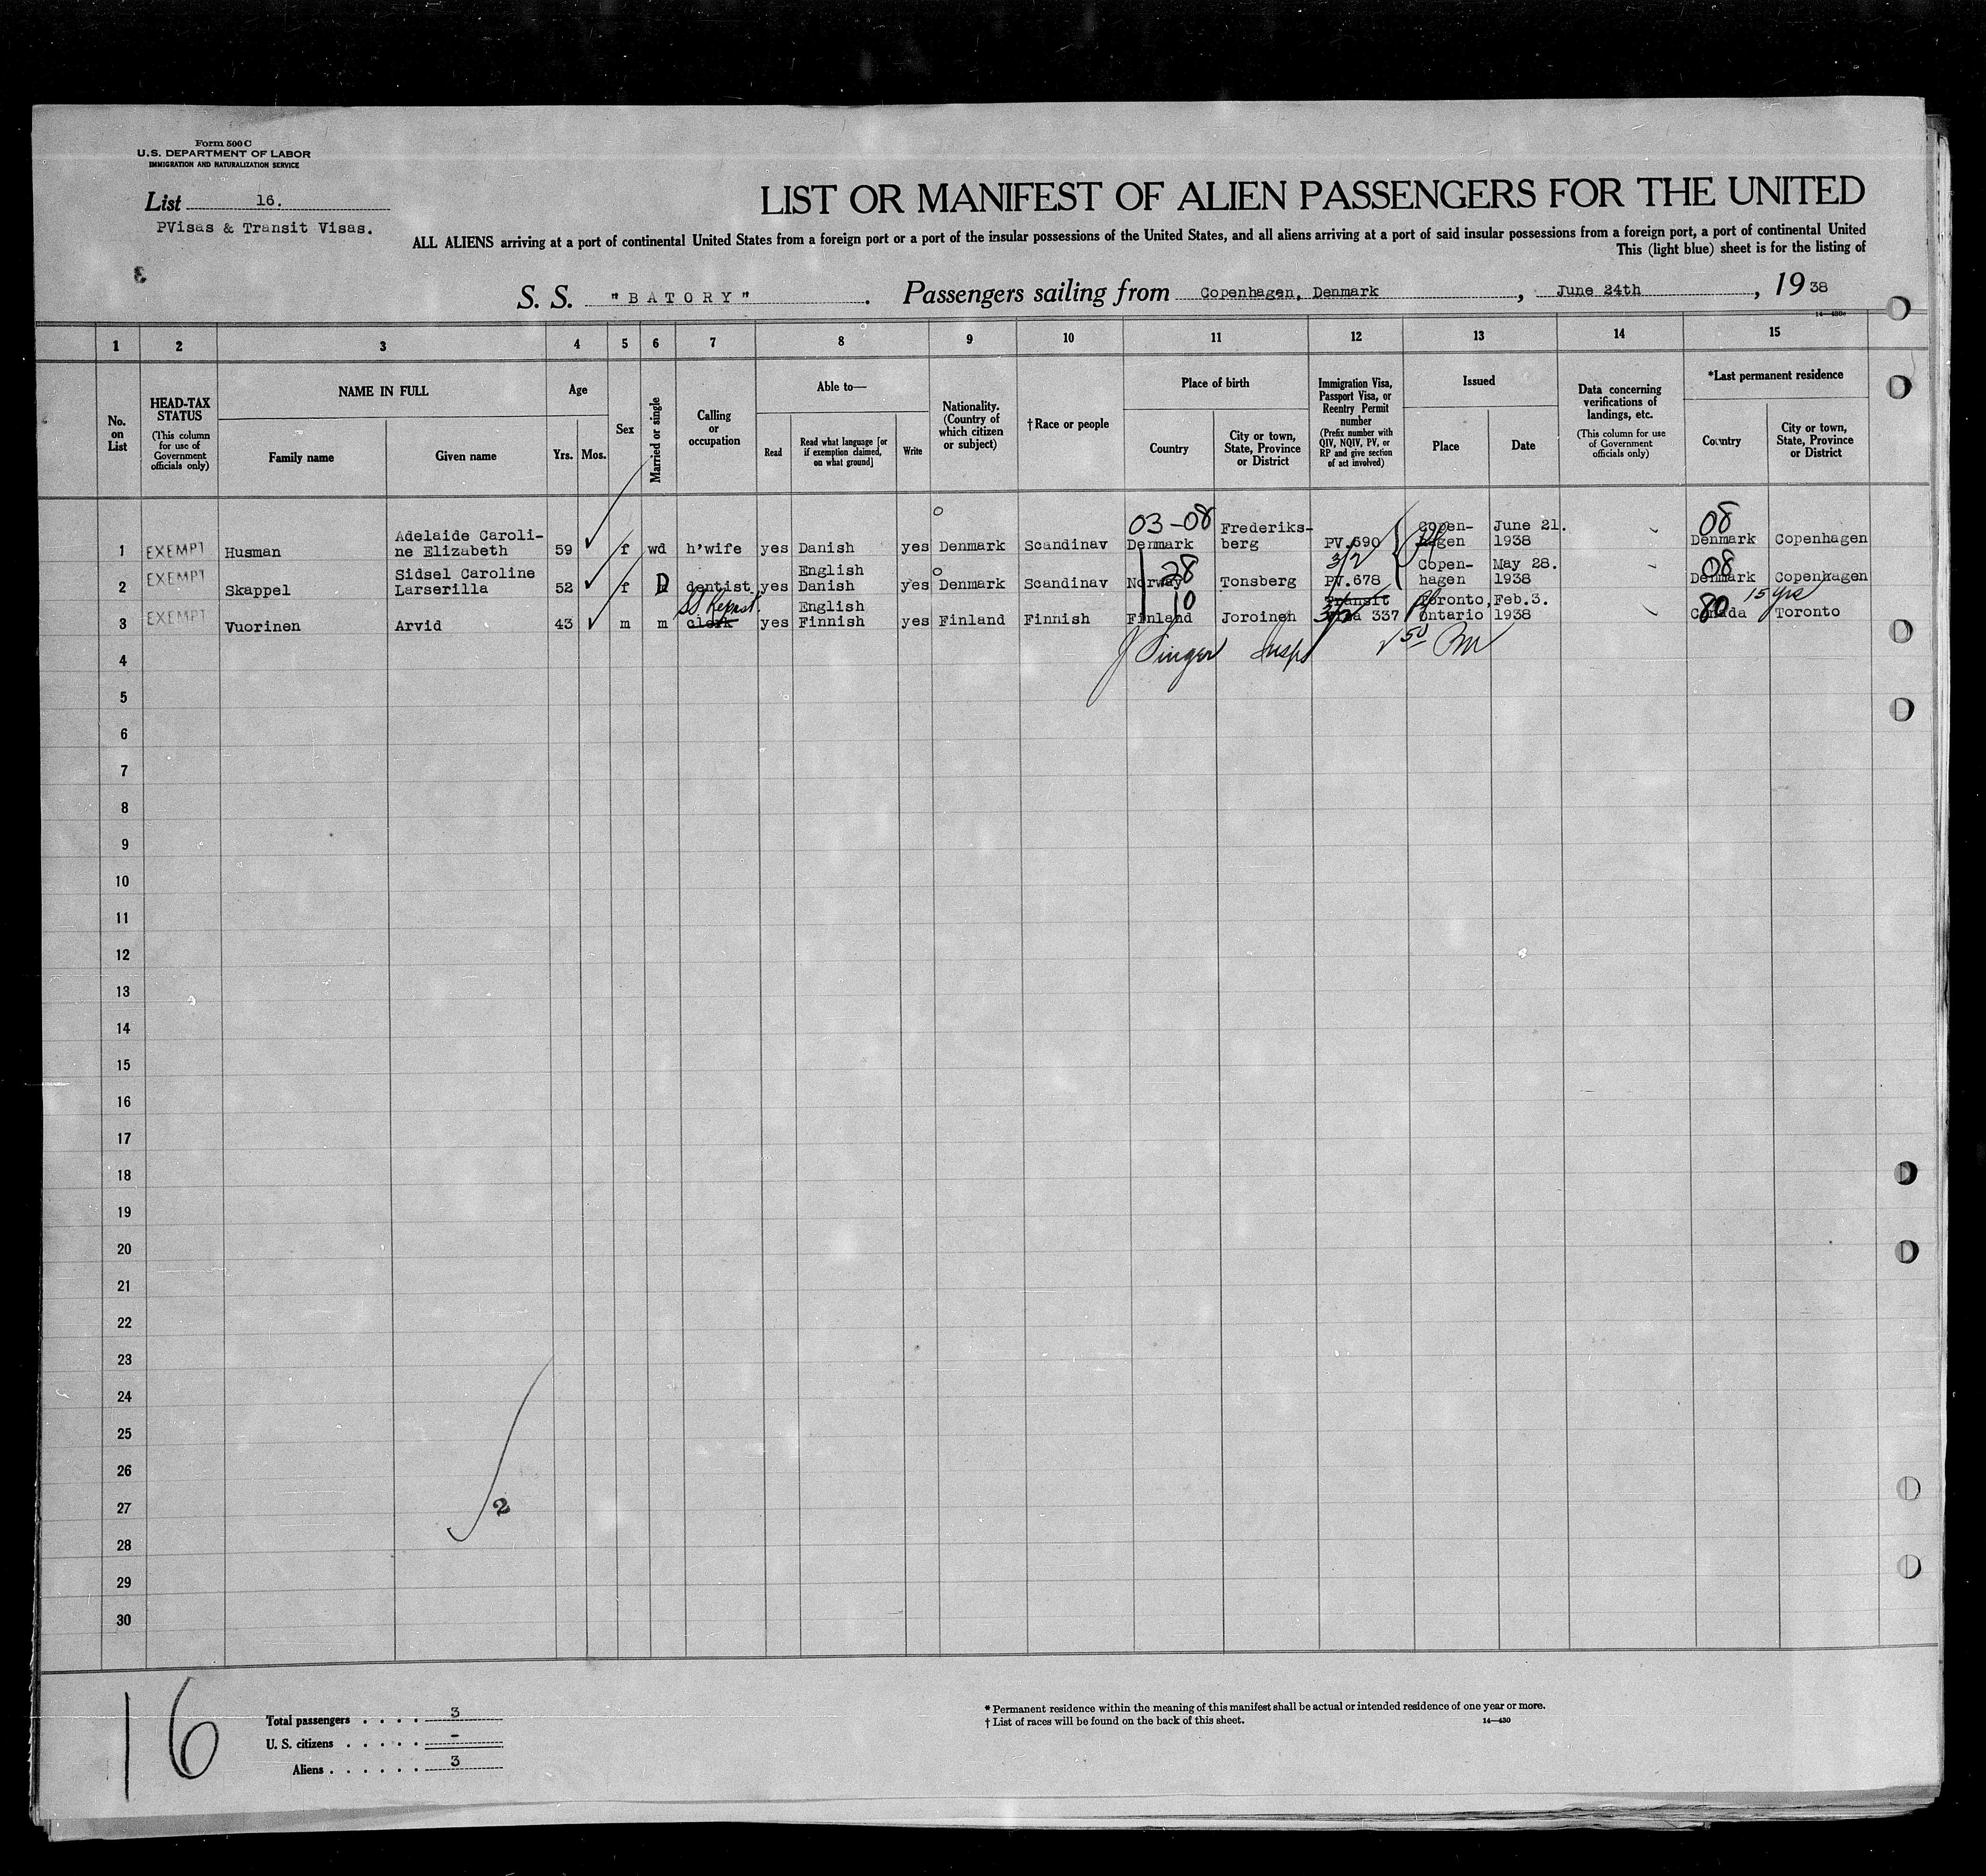 Form 500 C
U.S. DEPARTMENT OF LABOR
IMMIGRATION AND NATURALIZATION SERVICE
List 16.
PVisas & Transit Visas.
LIST OR MANIFEST OF ALIEN PASSENGERS FOR THE UNITED
ALL ALIENS arriving at a port of continental United States from a foreign port or a port of the insular possessions of the United States, and all aliens arriving at a port of said insular possessions from a foreign port, a port of continental United
This (light blue) sheet is for the listing of
S. S. "BATORY" . Passengers sailing from Copenhagen, Denmark , June 24th , 19 38
1 2 3 4 5 6 7 8 9 10 11 12 13 14 15
No. on List
HEAD-TAX STATUS
(This column for use of Government officials only)
NAME IN FULL
Family name
Given name
Age
Yrs. Mos.
Sex
Married or single
Calling or occupation
Able to—
Read
Read what language [or if exemption claimed, on what ground]
Write
Nationality. (Country of which citizen or subject)
†Race or people
Place of birth
Country
City or town, State, Province or District
Immigration Visa, Passport Visa, or Reentry Permit number
(Prefix number with QIV, NQIV, PV, or RP and give section of act involved)
Issued
Place
Date
Data concerning verifications of landings, etc.
(This column for use of Government officials only)
*Last permanent residence
Country
City or town, State, Province or District
03-08 08
Adelaide Caroli- Frederiks- Copen- June 21.
1 EXEMPT Husman ne Elizabeth 59 f wd h'wife yes Danish yes Denmark Scandinav Denmark berg PV.690 hagen 1938 Denmark Copenhagen
Sidsel Caroline English 28 3/2 Copen- May 28. 08
2 EXEMPT Skappel Larserilla 52 f D dentist yes Danish yes Denmark Scandinav Norway Tonsberg PV.678 hagen 1938 Denmark Copenhagen
English 10 Transit Toronto, Feb.3. 80 15 yrs
3 EXEMPT Vuorinen Arvid 43 m m clerk yes Finnish yes Finland Finnish Finland Joroinen 3/2 Visa 337 Ontario 1938 Canada Toronto
J Singer Insp
4
5
6
7
8
9
10
11
12
13
14
15
16
17
18
19
20
21
22
23
24
25
26
27
2
28
29
30
16
Total passengers . . . . 3
U. S. citizens . . . . . -
Aliens . . . . . . 3
* Permanent residence within the meaning of this manifest shall be actual or intended residence of one year or more.
† List of races will be found on the back of this sheet. 14—430